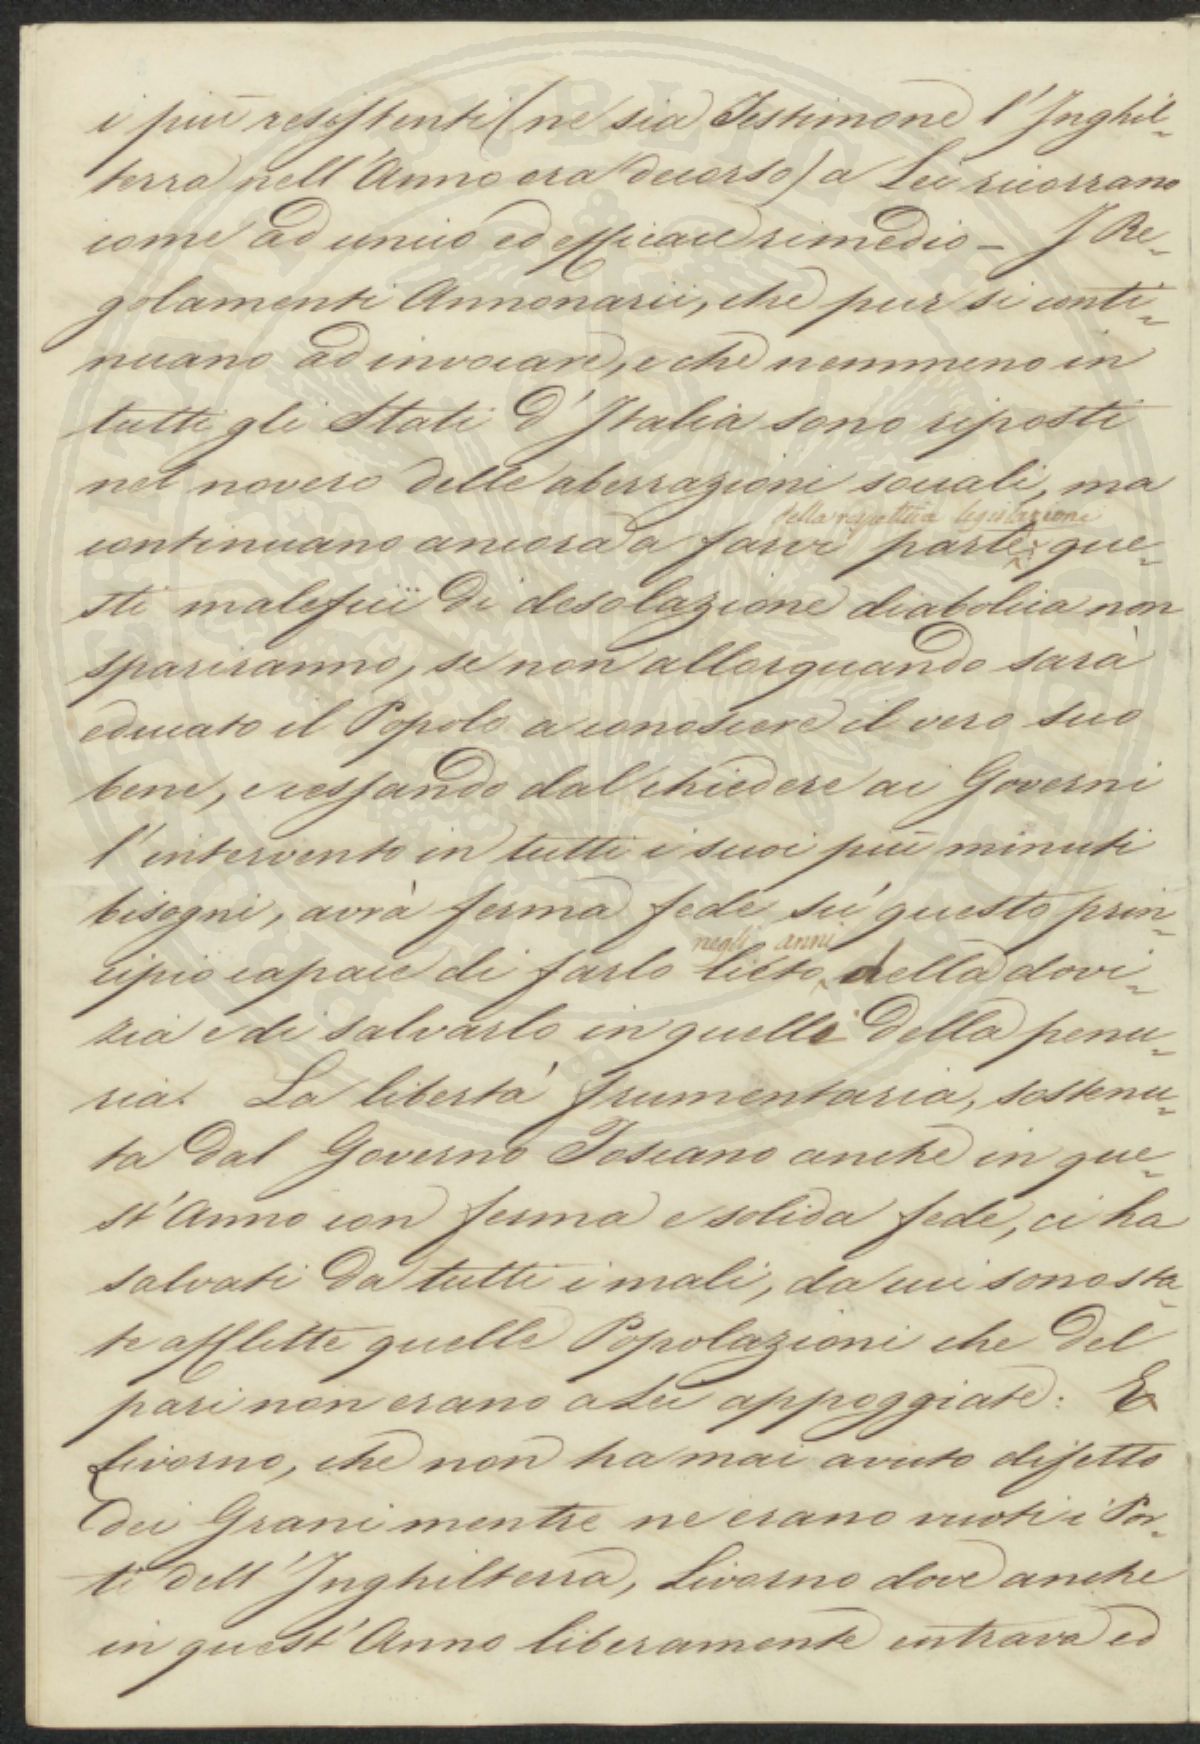 i più resistenti (ne sia Testimone l'Inghil-
terra nell'Anno ora decorso) a Lei ricorrano
come ad unico ed efficace rimedio – I Re-
golamenti Annonarii, che pur si conti-
nuano ad invocare, e che nemmeno in
tutti gli Stati d'Italia sono riposti
nel novero delle aberrazioni sociali, ma
della rispettiva legislazione
continuano ancora a farvi parte, que-
sti maleficii di desolazione diabolica non
spariranno, se non allorquando sarà
educato il Popolo a conoscere il vero suo
bene, e cessando dal chiedere ai Governi
l'intervento in tutti i suoi più minuti
bisogni, avrà ferma fede su' questo prin-
negli anni
cipio capace di farlo lieto della dovi-
zia e di salvarlo in quelli della penu-
ria. La libertà frumentaria, sostenu-
ta dal Governo Toscano anche in que-
st'Anno con ferma e solida fede, ci ha
salvati da tutti i mali, da cui sono sta-
te afflitte quelle Popolazioni che del
pari non erano a Lei appoggiate: E
Livorno, che non ha mai avuto difetto
dei Grani mentre ne erano vuoti i Por-
ti dell'Inghilterra, Livorno dove anche
in quest'Anno liberamente entrava ed